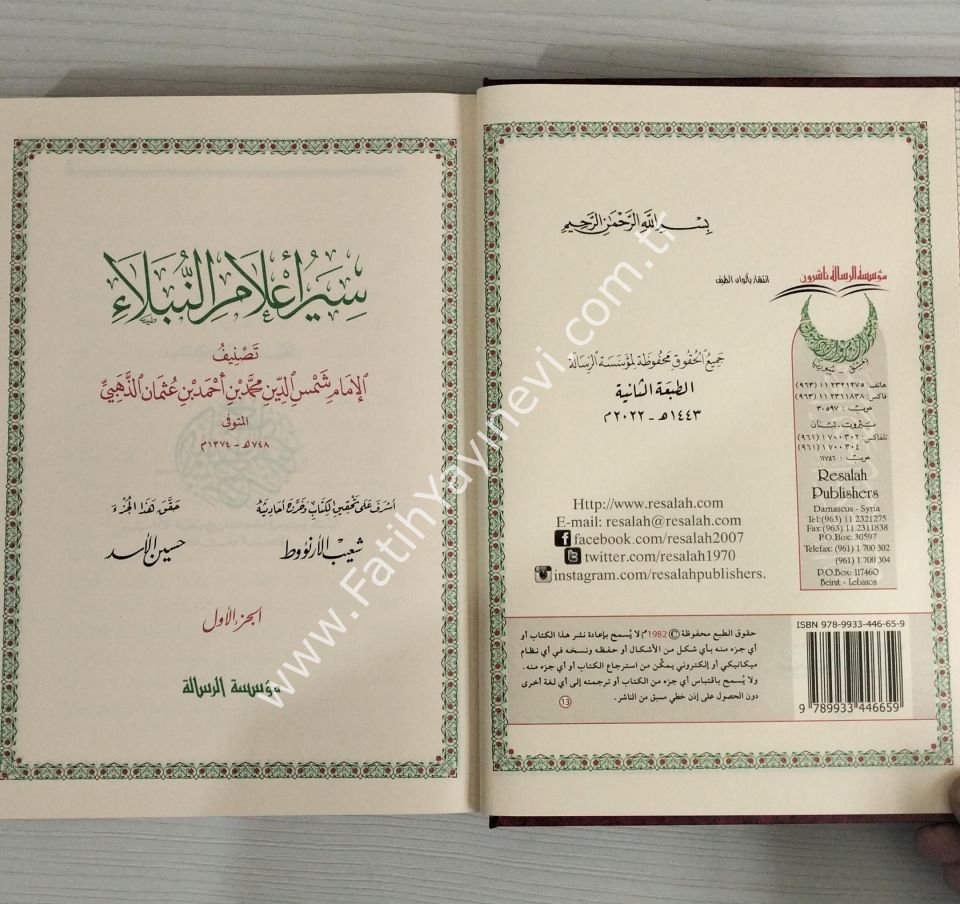 بِسْمِ اللهِ الرَّحْمٰنِ الرَّحِيمِ
مؤسسة الرسالة ناشرون
انتشار بألوان الطيف
جميع الحقوق محفوظة لمؤسسة الرسالة
الطبعة الثانية
١٤٤٣هـ - ٢٠٢٢م
دمشق - سوريا
هاتف: ٢٣٢١٢٧٥ ١١ (٩٦٣)
فاكس: ٢٣١١٨٣٨ ١١ (٩٦٣)
ص.ب: ٣٠٥٩٧
بيروت - لبنان
تلفاكس: ٧٠٠٣٠٢ ١ (٩٦١)
٧٠٠٣٠٤ ١ (٩٦١)
ص.ب: ١١٧٤٦٠
Resalah
Publishers
Damascus - Syria
Tel:(963) 11 2321275
Fax:(963) 11 2311838
P.O.Box: 30597
Telefax: (961) 1 700 302
(961) 1 700 304
P.O.Box: 117460
Beirut - Lebanon
Http://www.resalah.com
E-mail: resalah@resalah.com
facebook.com/resalah2007
twitter.com/resalah1970
instagram.com/resalahpublishers.
حقوق الطبع محفوظة © 1982م لا يُسمح بإعادة نشر هذا الكتاب أو
أي جزء منه بأي شكل من الأشكال أو حفظه ونسخه في أي نظام
ميكانيكي أو إلكتروني يمكّن من استرجاع الكتاب أو أي جزء منه.
ولا يُسمح باقتباس أي جزء من الكتاب أو ترجمته إلى أي لغة أخرى
دون الحصول على إذن خطي مسبق من الناشر.
13
ISBN 978-9933-446-65-9
9 789933 446659
سِيَرُ أَعْلَامِ النُّبَلَاءِ
تَصْنِيفُ
الإِمَامِ شَمْسِ الدِّينِ مُحَمَّدِ بْنِ أَحْمَدَ بْنِ عُثْمَانَ الذَّهَبِيِّ
المتوفى
٧٤٨هـ - ١٣٧٤م
أشرف على تحقيق الكتاب وخرّج أحاديثه
شعيب الأرنؤوط
حقّق هذا الجزء
حسين الأسد
الجزء الأول
مؤسسة الرسالة
www.FatihYayinevi.com.tr